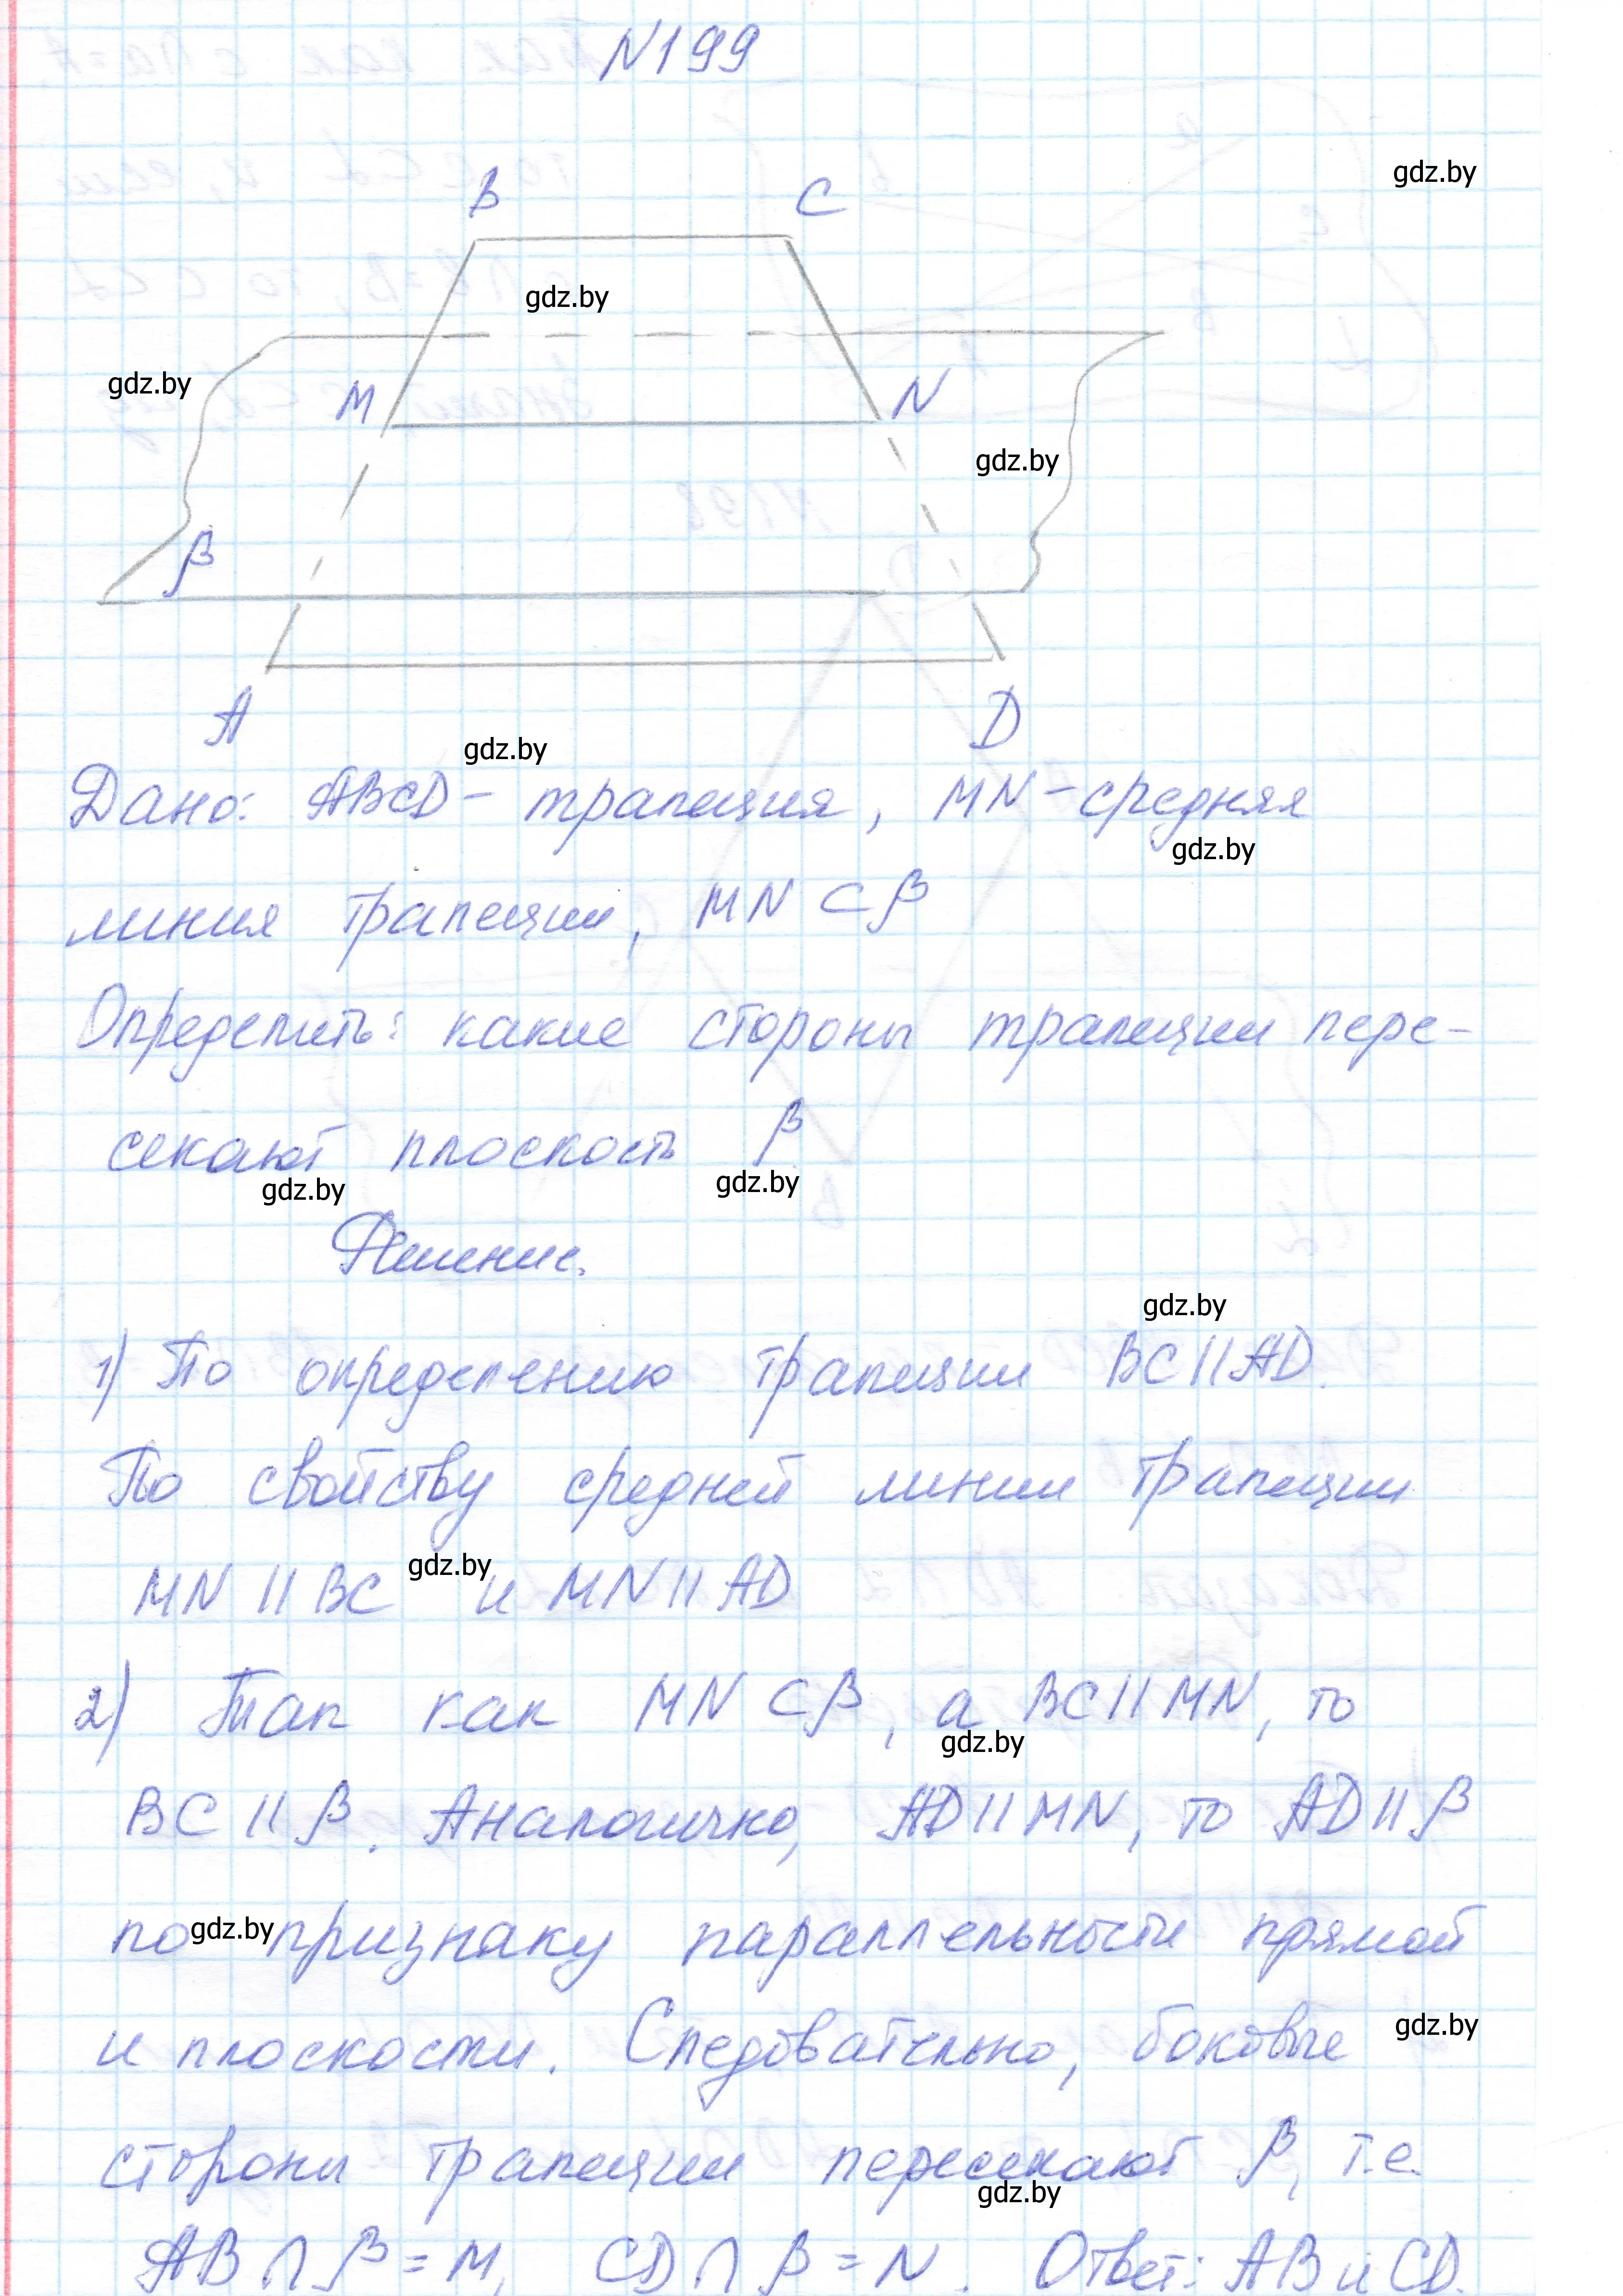 N199
gdz.by
B C
gdz.by
gdz.by
M N
gdz.by
β
A D
gdz.by
Дано: ABCD – трапеция, MN – средняя
gdz.by
линия трапеции, MN ⊂ β
Определить: какие стороны трапеции пере-
секают плоскость β
gdz.by gdz.by
Решение.
gdz.by
1) По определению трапеции BC || AD.
По свойству средней линии трапеции
MN || BC gdz.by и MN || AD
2) Так как MN ⊂ β, а BC || MN, то
gdz.by
BC || β. Аналогично, AD || MN, то AD || β
по gdz.by признаку параллельности прямой
и плоскости. Следовательно, боковые gdz.by
стороны трапеции пересекают β, т.е.
gdz.by
AB ∩ β = M, CD ∩ β = N. Ответ: AB и CD.